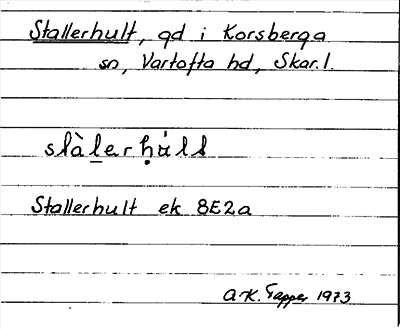 Stallerhult, gd i Korsberga
sn, Vartofta hd, Skar. l.
Stallerhult ek 8E2a
A-K. Tapper 1973